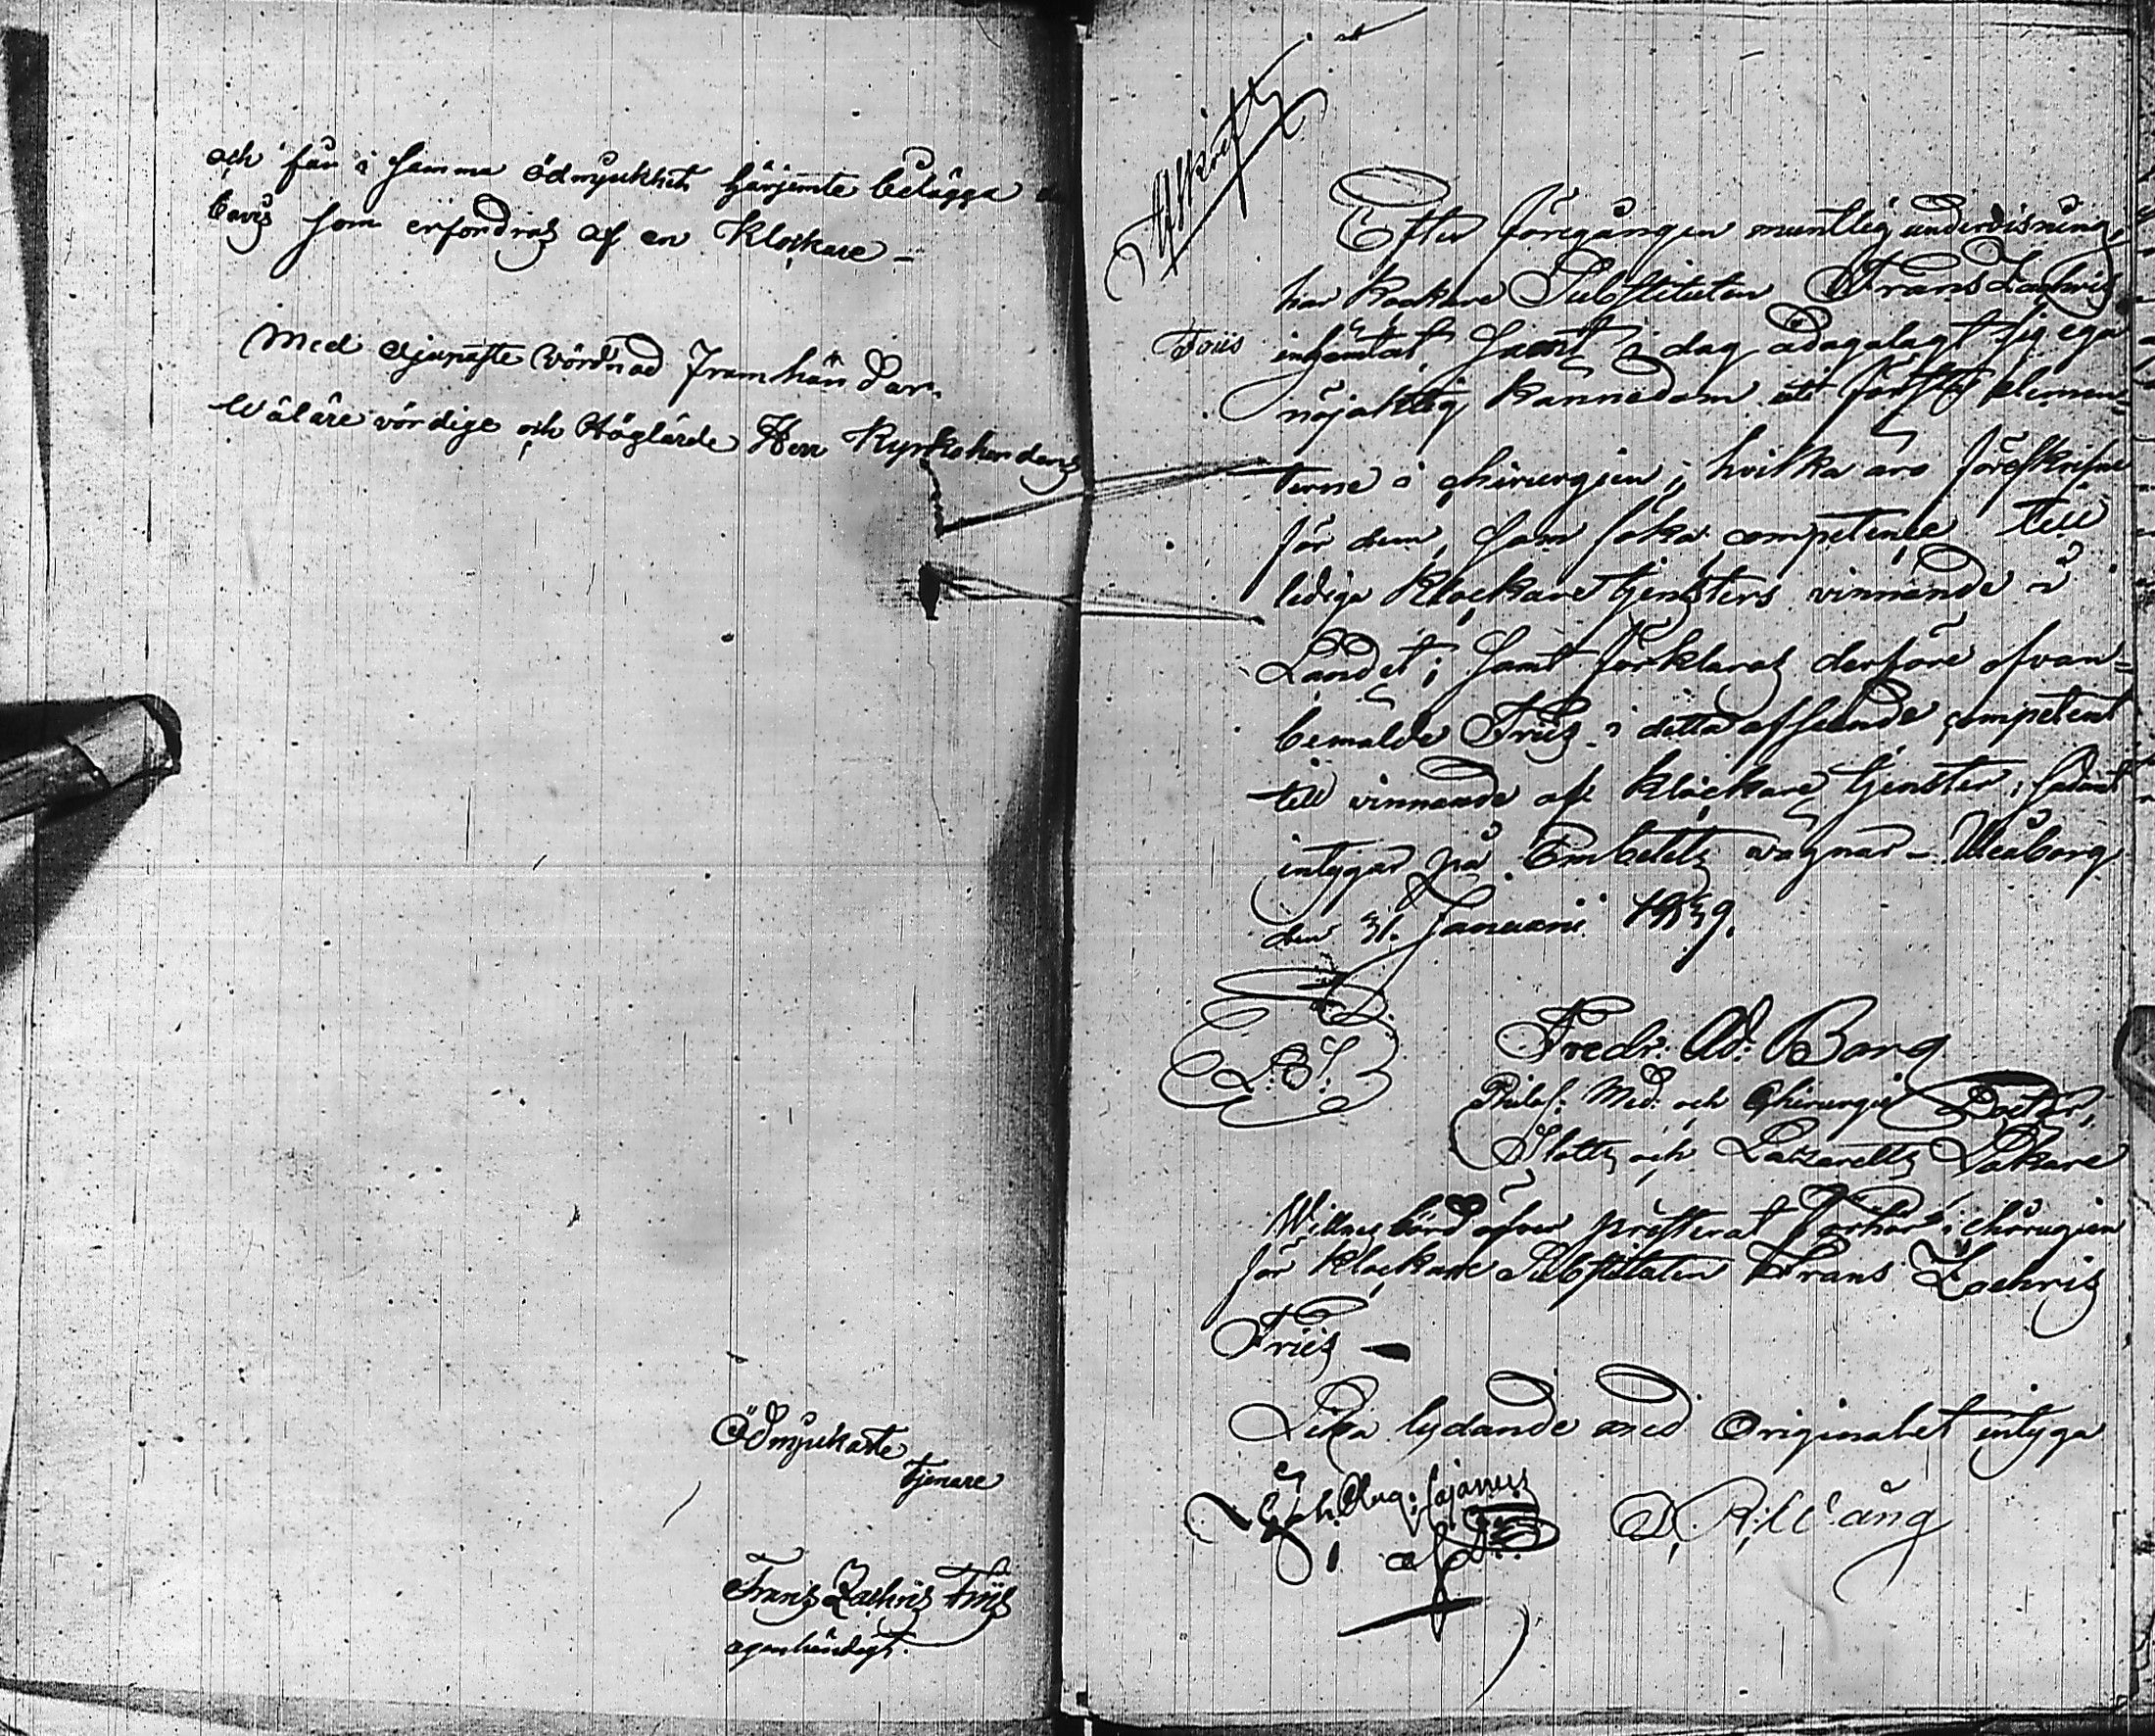 och får i samma ödmjukhet härjemte belägga
bevis som erfordras af en Klockare –
Med djupaste vördnad framhärdar
Wälärevördige och Höglärde Herr Kyrkoherdens
Ödmjukaste
tjenare
Frans Zachris Friis
egenhändigt.
Afskrift
Efter föregången muntlig undervisning,
har Klockare Substituten Frans Zachris
Friis inhemtat samt i dag ådagalagt sig ega
nöjaktig kännedom uti första elemen=
terne i chirurgien; hvilka äro föreskrifne
för dem, som söka competence till
lediga Klockaretjensters vinnande i
Landet; samt förklaras derföre ofvan=
bemälde Friis i detta afseende competent
till vinnande af klockare tjenster; sådant
intygar på Embetets vägnar – Uleåborg
den 31. Januari 1839.
L.S.
Fredr. Ad. Borg
Philos: Med. och Chirurgie Doctor,
Slotts och Lazaretts Läkare
Wittnesbörd öfver presterat förhör i chirurgien
för klockare Substituten Frans Zachris
Friis –
Lika lydande med Originalet intyga